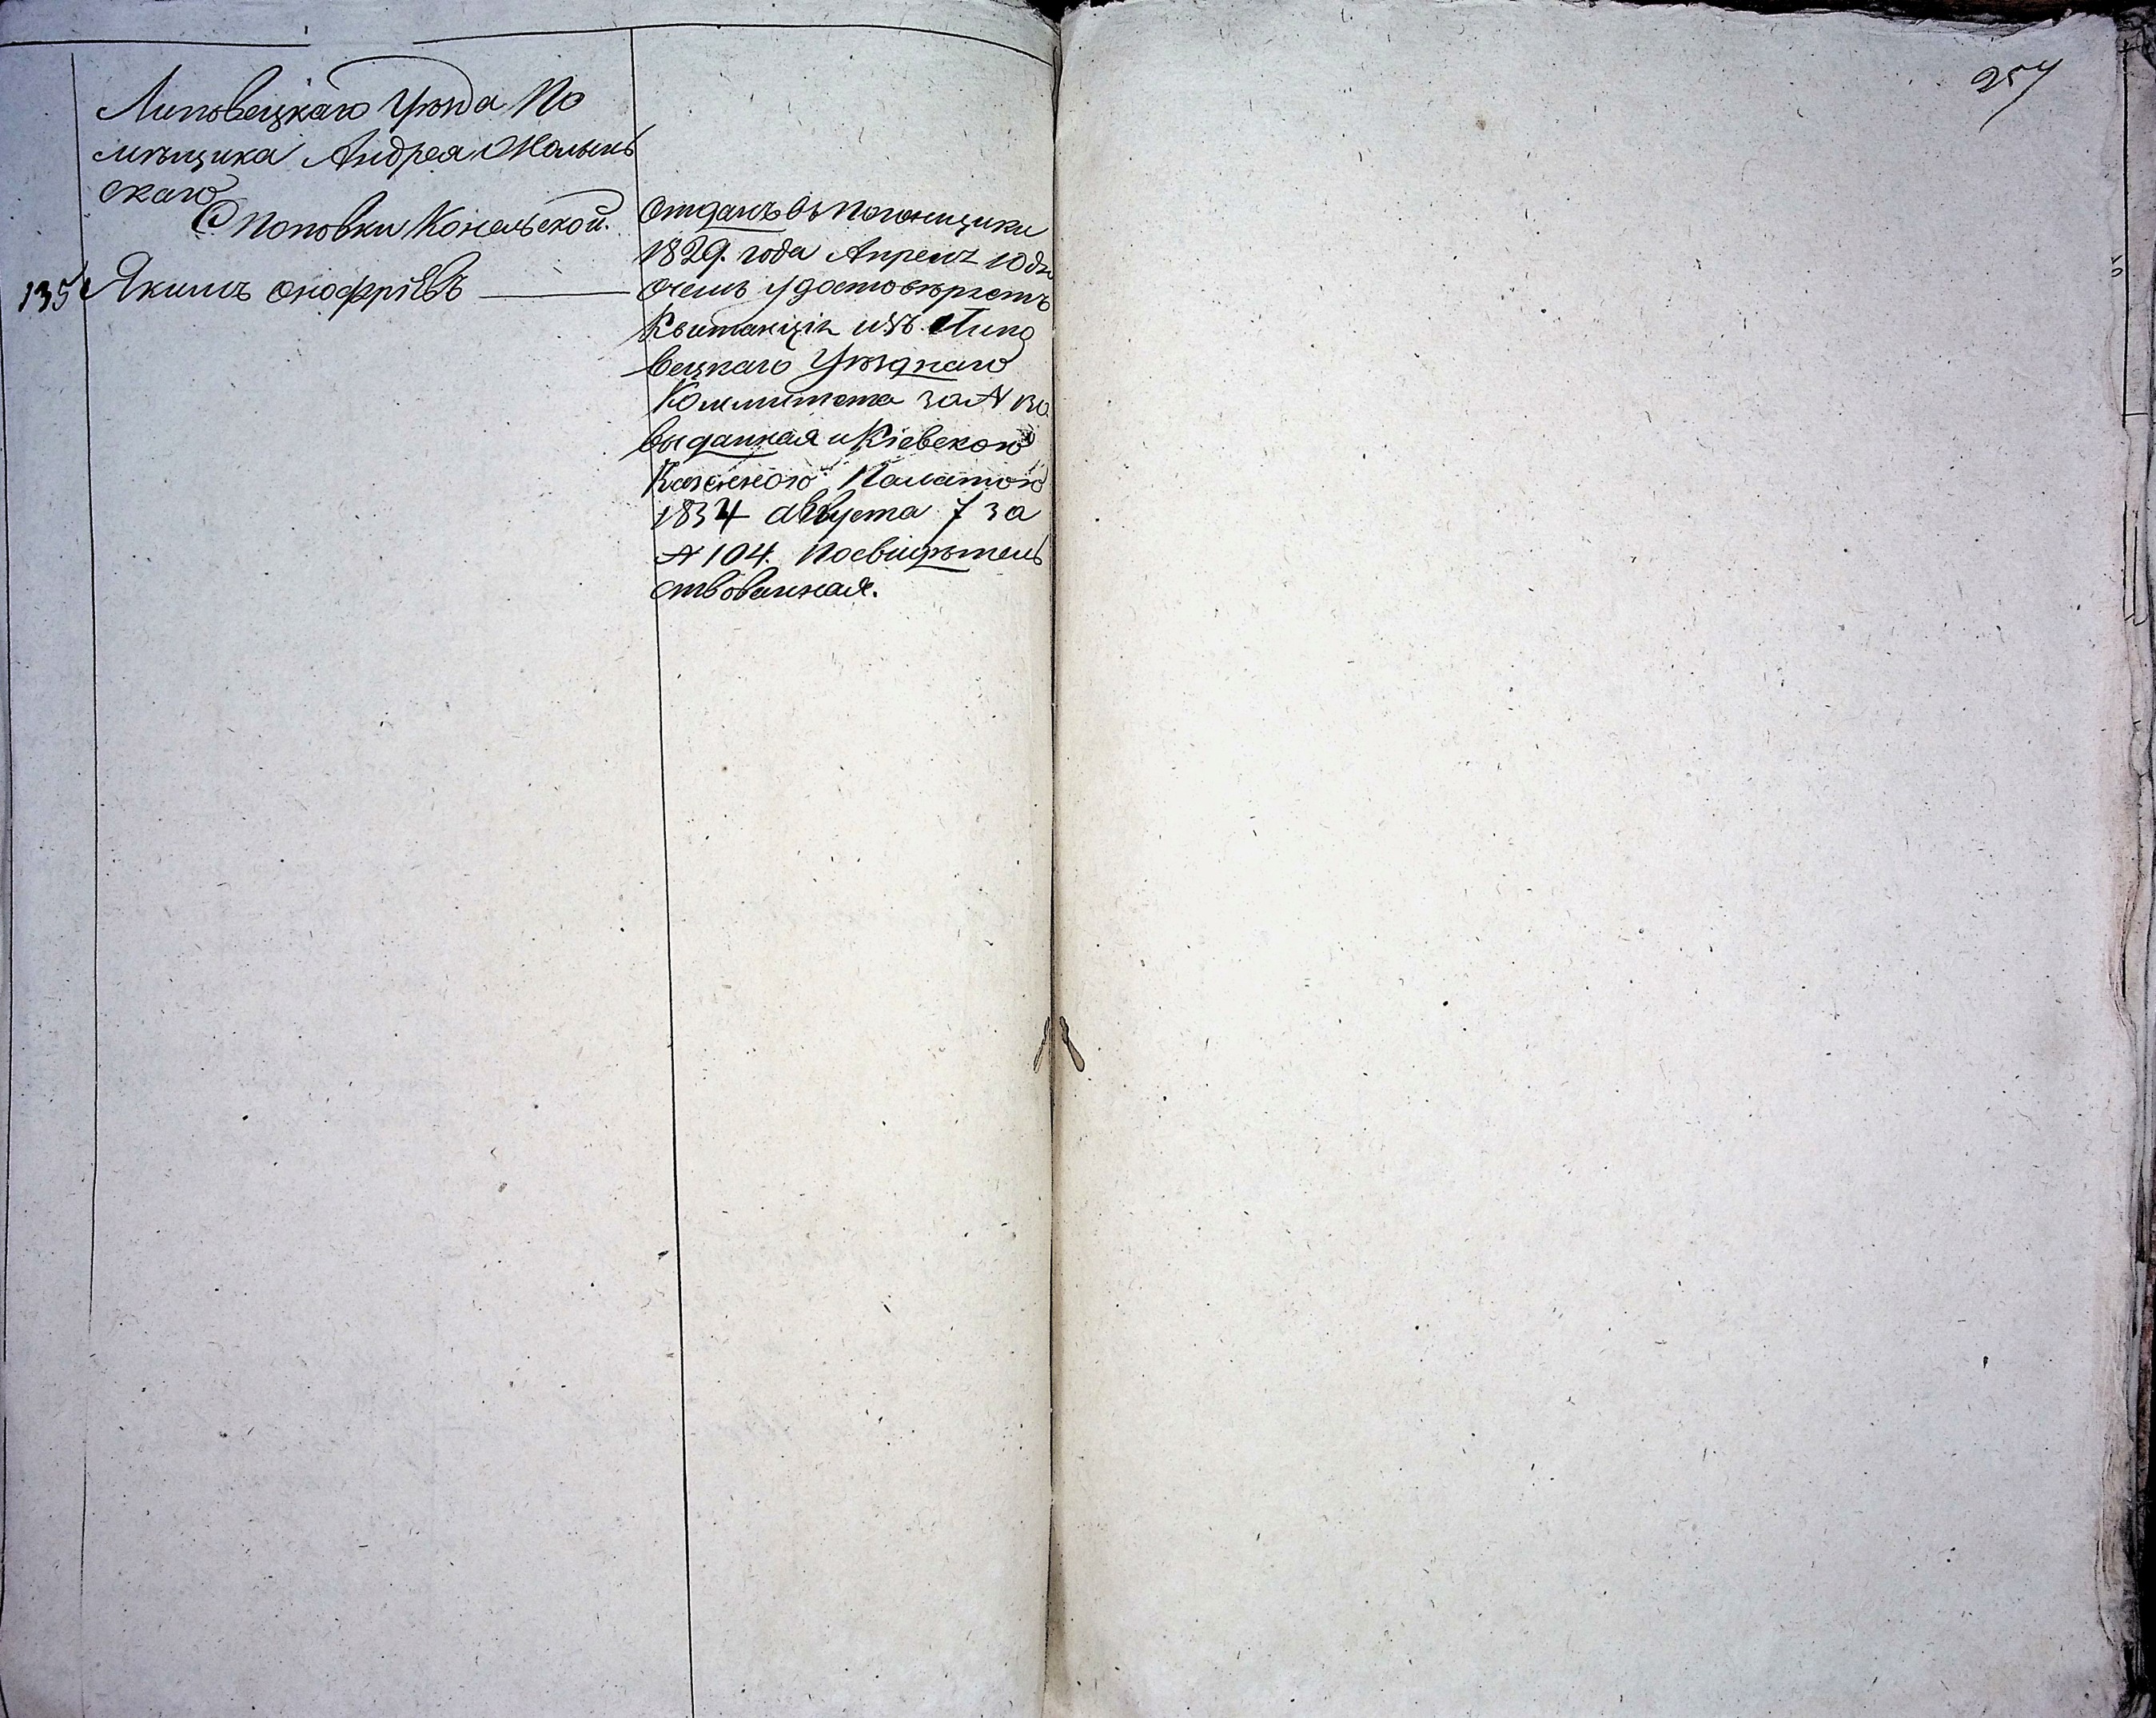 257
Липовецкаго Уѣзда По
мѣщика Андрея
скаго
С Поповки Конельской.
135 Якимъ Онофріевъ
Отданъ въ Погонщики
1829. года Апреля 10 дня
очемъ удостовѣряетъ
Квитанція изъ Липо
вецкаго Уѣзднаго
Коммитета за №
выданная и Кіевскою
Казенною Палатою
1834 августа 7 за
№ 104. Посвидѣтель
ствованная.